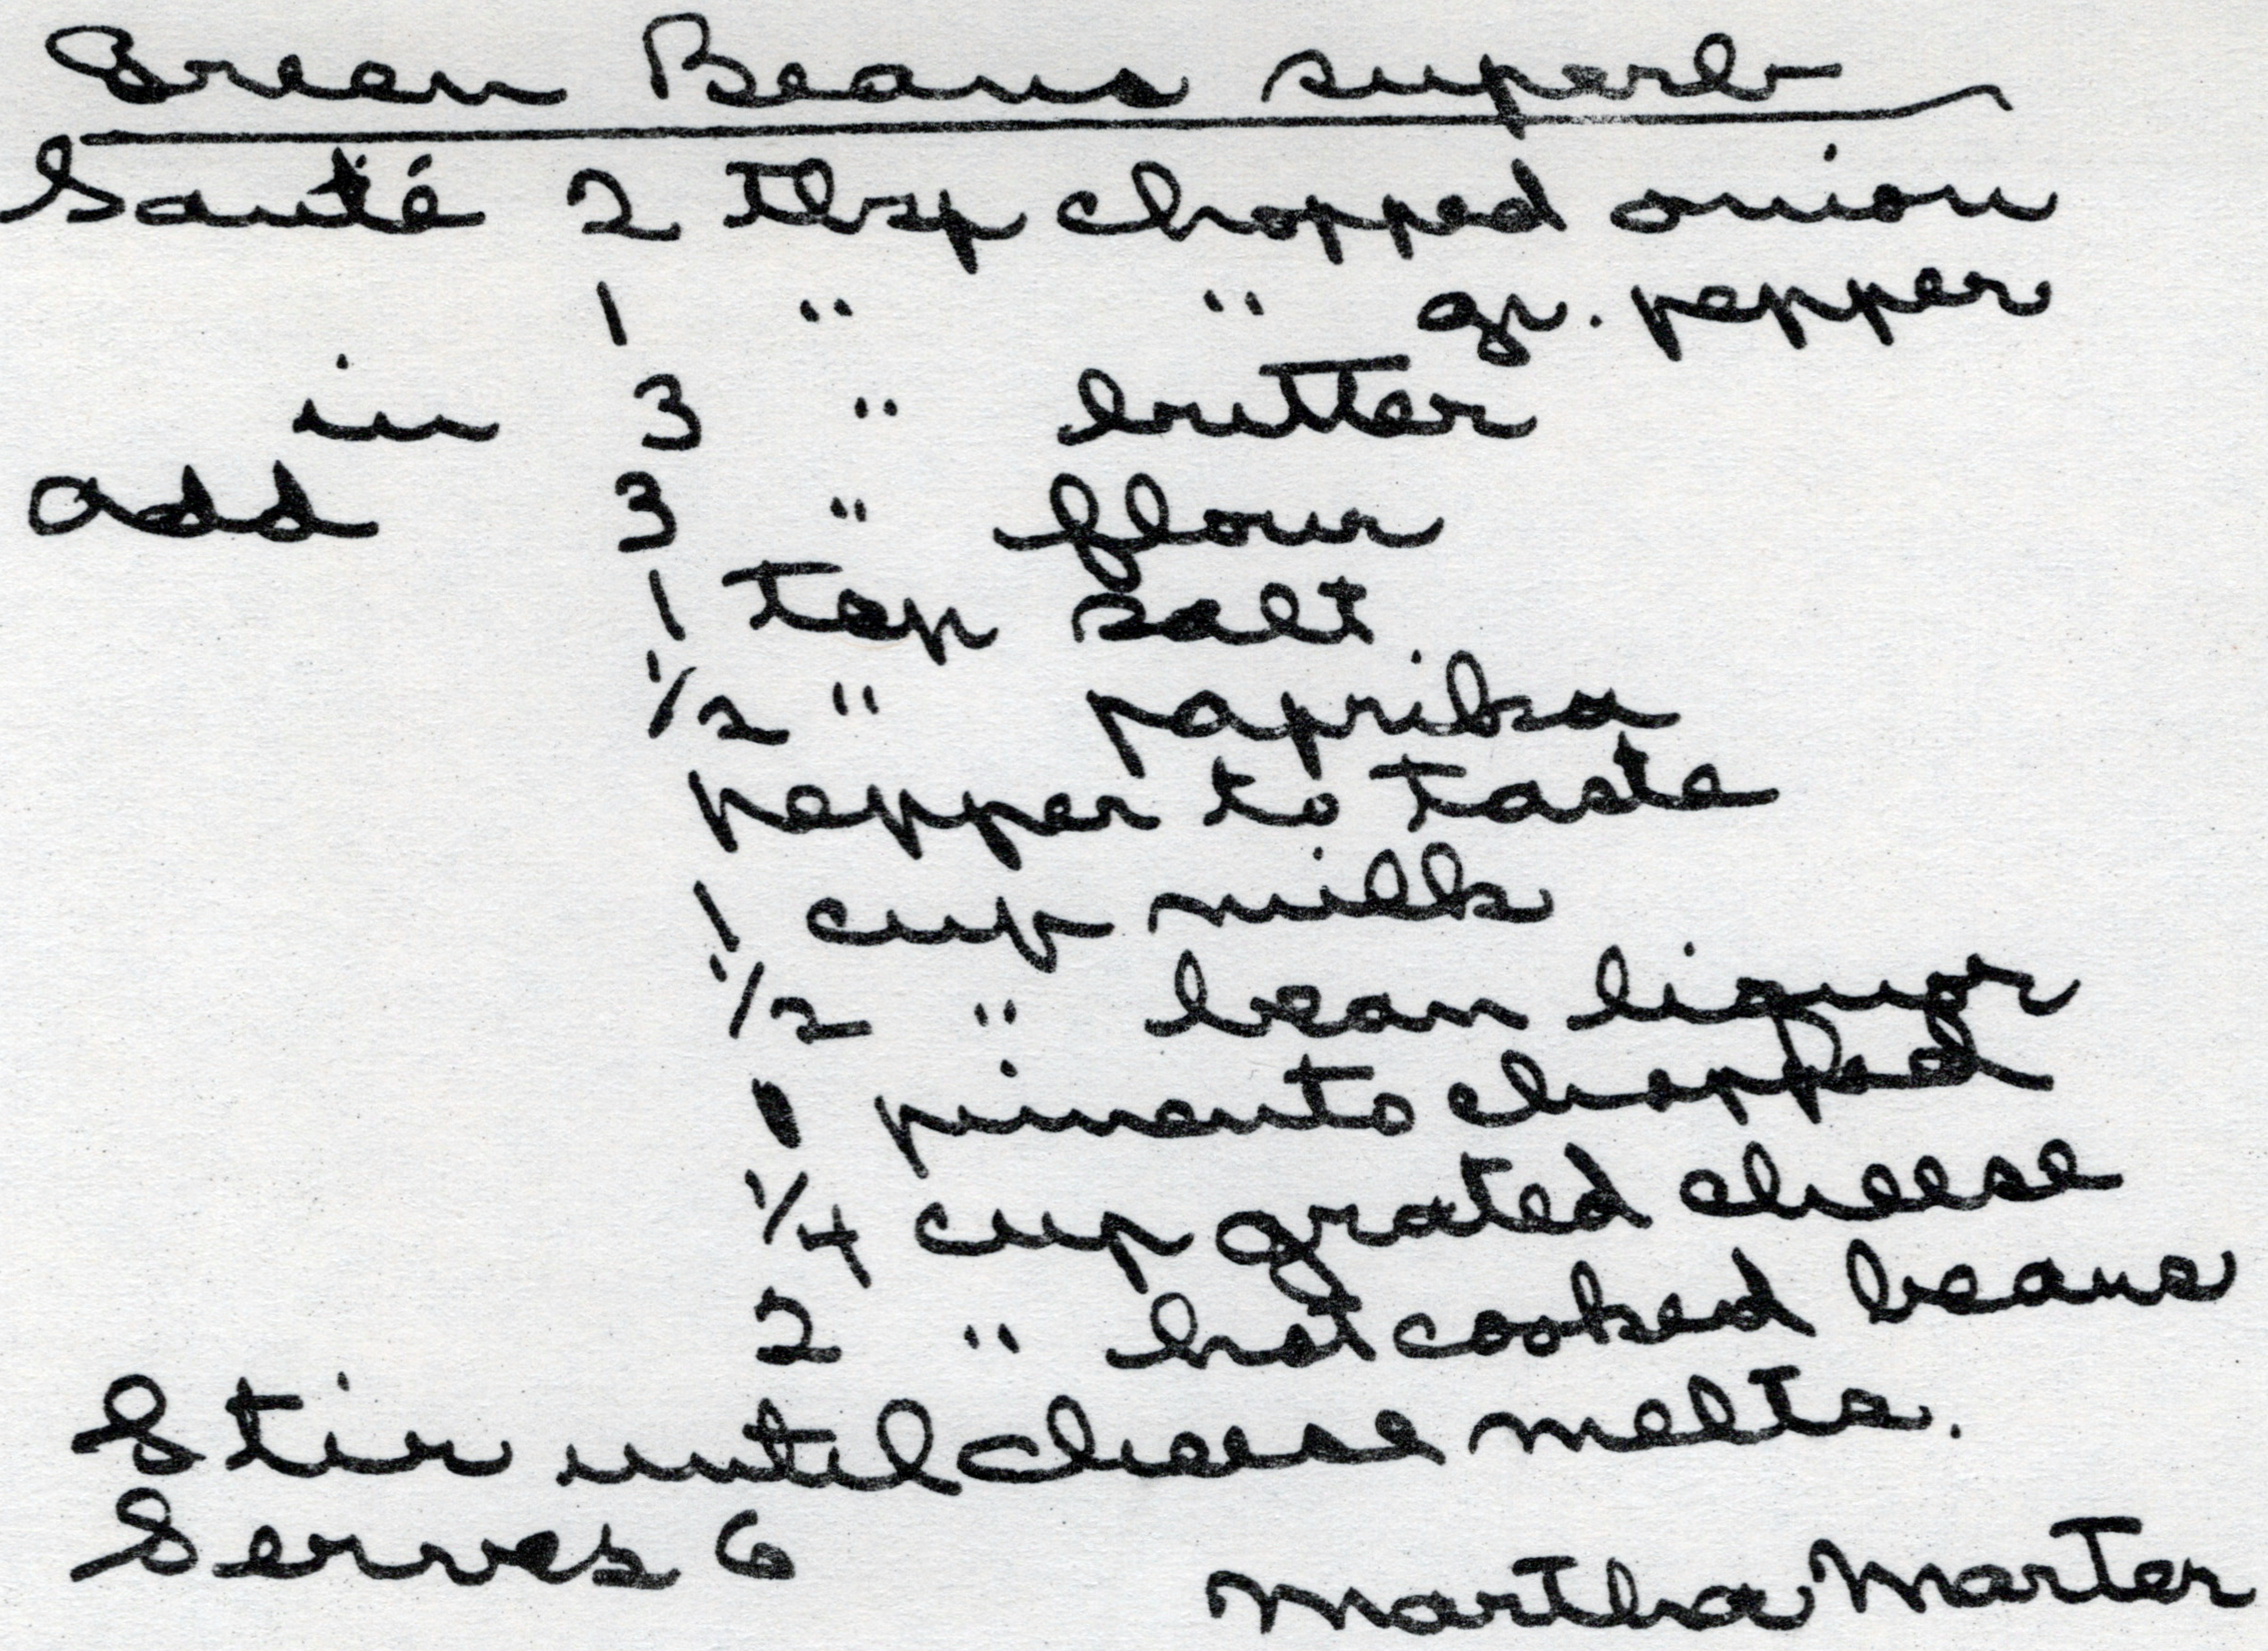 Green Beans superb
Sauté 2 tbsp chopped onion
1 " " gr. pepper
in 3 " butter
add 3 " flour
1 tsp salt
1/2 " paprika
pepper to taste
1 cup milk
1/2 " bean liquor
1 pimento chopped
1/4 cup grated cheese
2 " hot cooked beans
Stir until cheese melts.
Serves 6
Martha Marter